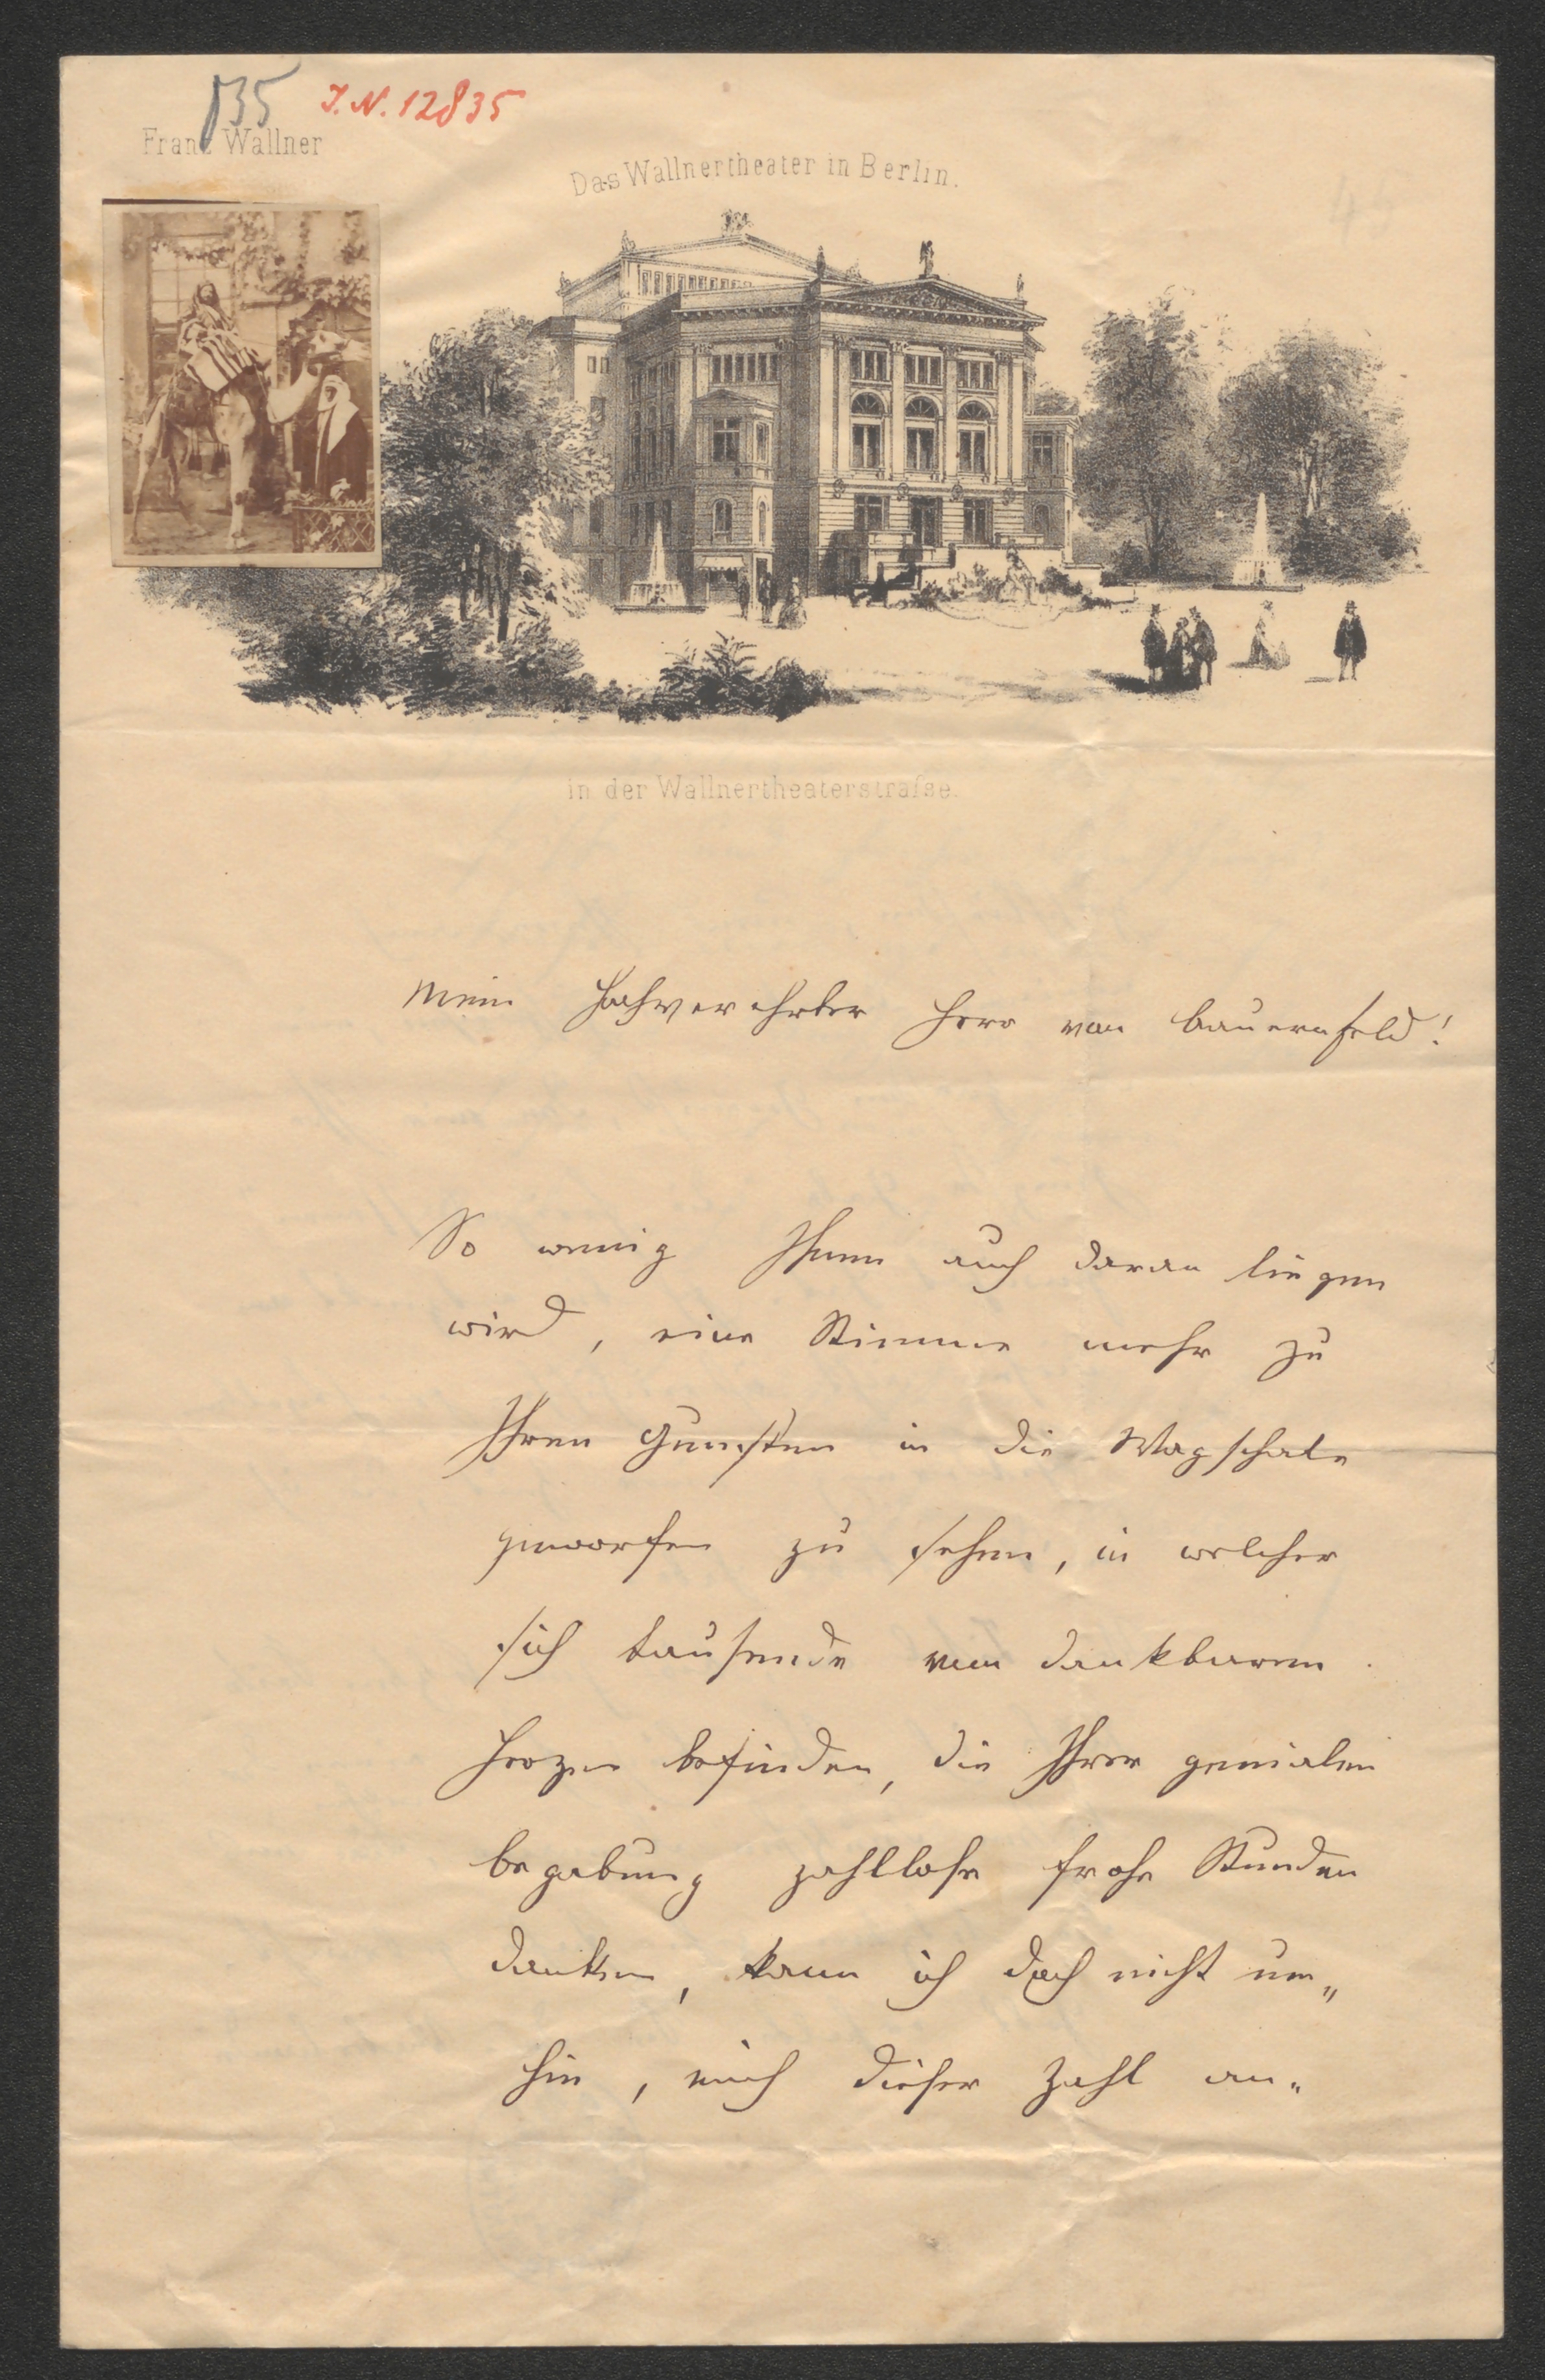 135 I. N. 12835
Franz Wallner
Das Wallnertheater in Berlin.
in der Wallnertheaterstraſse.
Mein hochverehrter Herr von Bauernfeld!
So wenig Ihnen auch daran liegen
wird, eine Stimme mehr zu
Ihren Gunsten in die Wagschale
geworfen zu sehen, in welcher
sich tausende von dankbaren
Herzen befinden, die Ihrer genialen
Begabung zahllose frohe Stunden
danken, kann ich doch nicht um„
hin, mich dieser Zahl an„